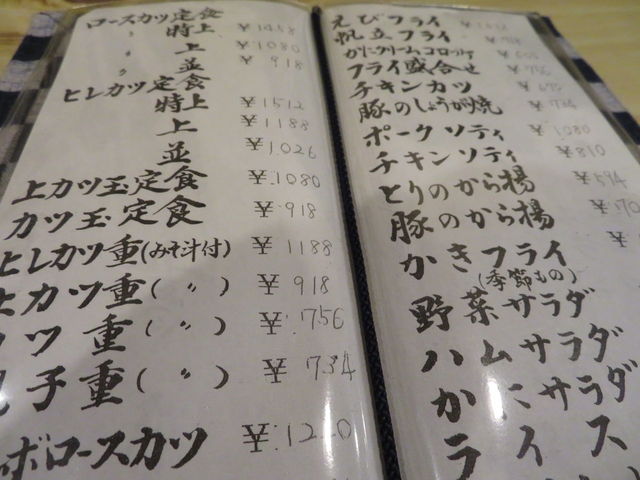 ロースカツ定食
〃 特上 ¥1458
〃 上 ¥1080
〃 並 ¥918
ヒレカツ定食
特上 ¥1512
上 ¥1188
並 ¥1026
上カツ玉定食 ¥1080
カツ玉定食 ¥918
ヒレカツ重(みそ汁付) ¥1188
カツ重(〃) ¥918
ツ重(〃) ¥756
子重(〃) ¥734
ボロースカツ
えびフライ
帆立フライ
かにクリームコロッケ
フライ盛合せ
チキンカツ
豚のしょうが焼
ポークソティ ¥1080
チキンソティ ¥810
とりのから揚 ¥594
豚のから揚
かきフライ
(季節もの)
野菜サラダ
ハムサラダ
かにサラダ
ライス